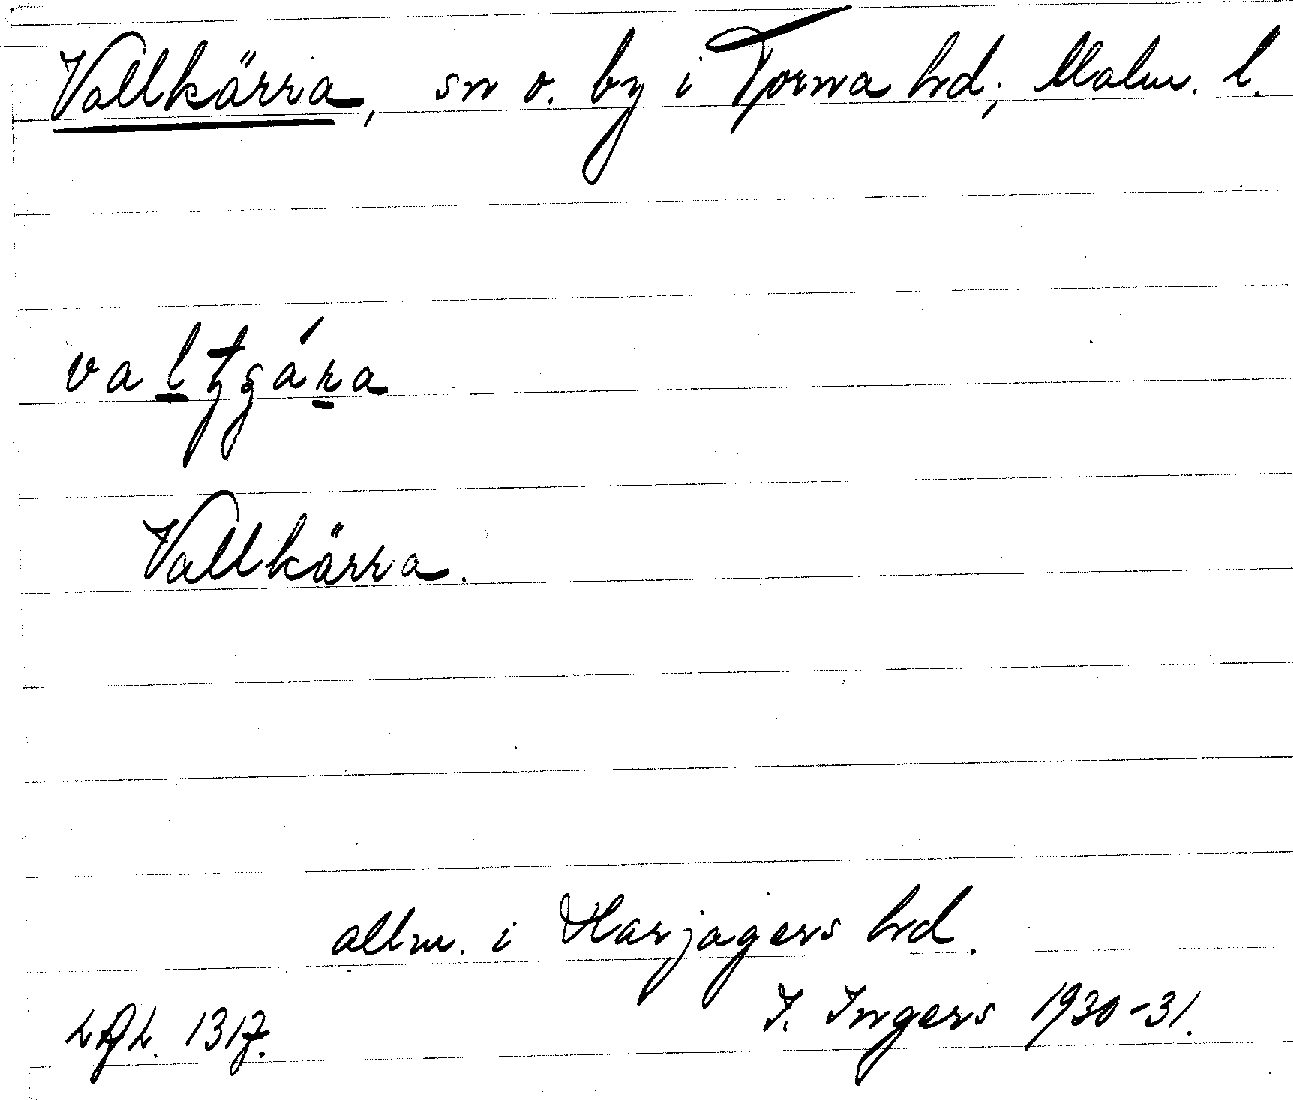 Vallkärra, sn o. by i Torna hd; Malm. l.
Vallkärra.
allm. i Harjagers hd.
I. Ingers 1930-31.
1317.